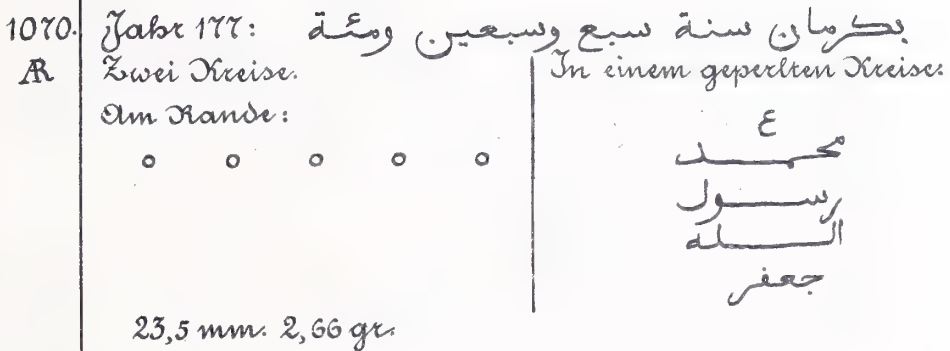 1070. Jahr 177: بكرمان سنة سبع وسبعين ومئة
AR Zwei Kreise.
Am Rande:
o o o o o
23,5 mm. 2,66 gr.
In einem geperlten Kreise:
ع
محمد
رسول
الله
جعفر